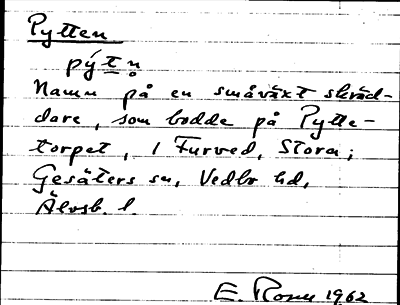 Pytten
pýtn̥
Namn på en småväxt skräd-
dare, som bodde på Pytte-
torpet, i Furved, Stora;
Gesäters sn, Vedbo hd,
Älvsb. l.
E. 1962